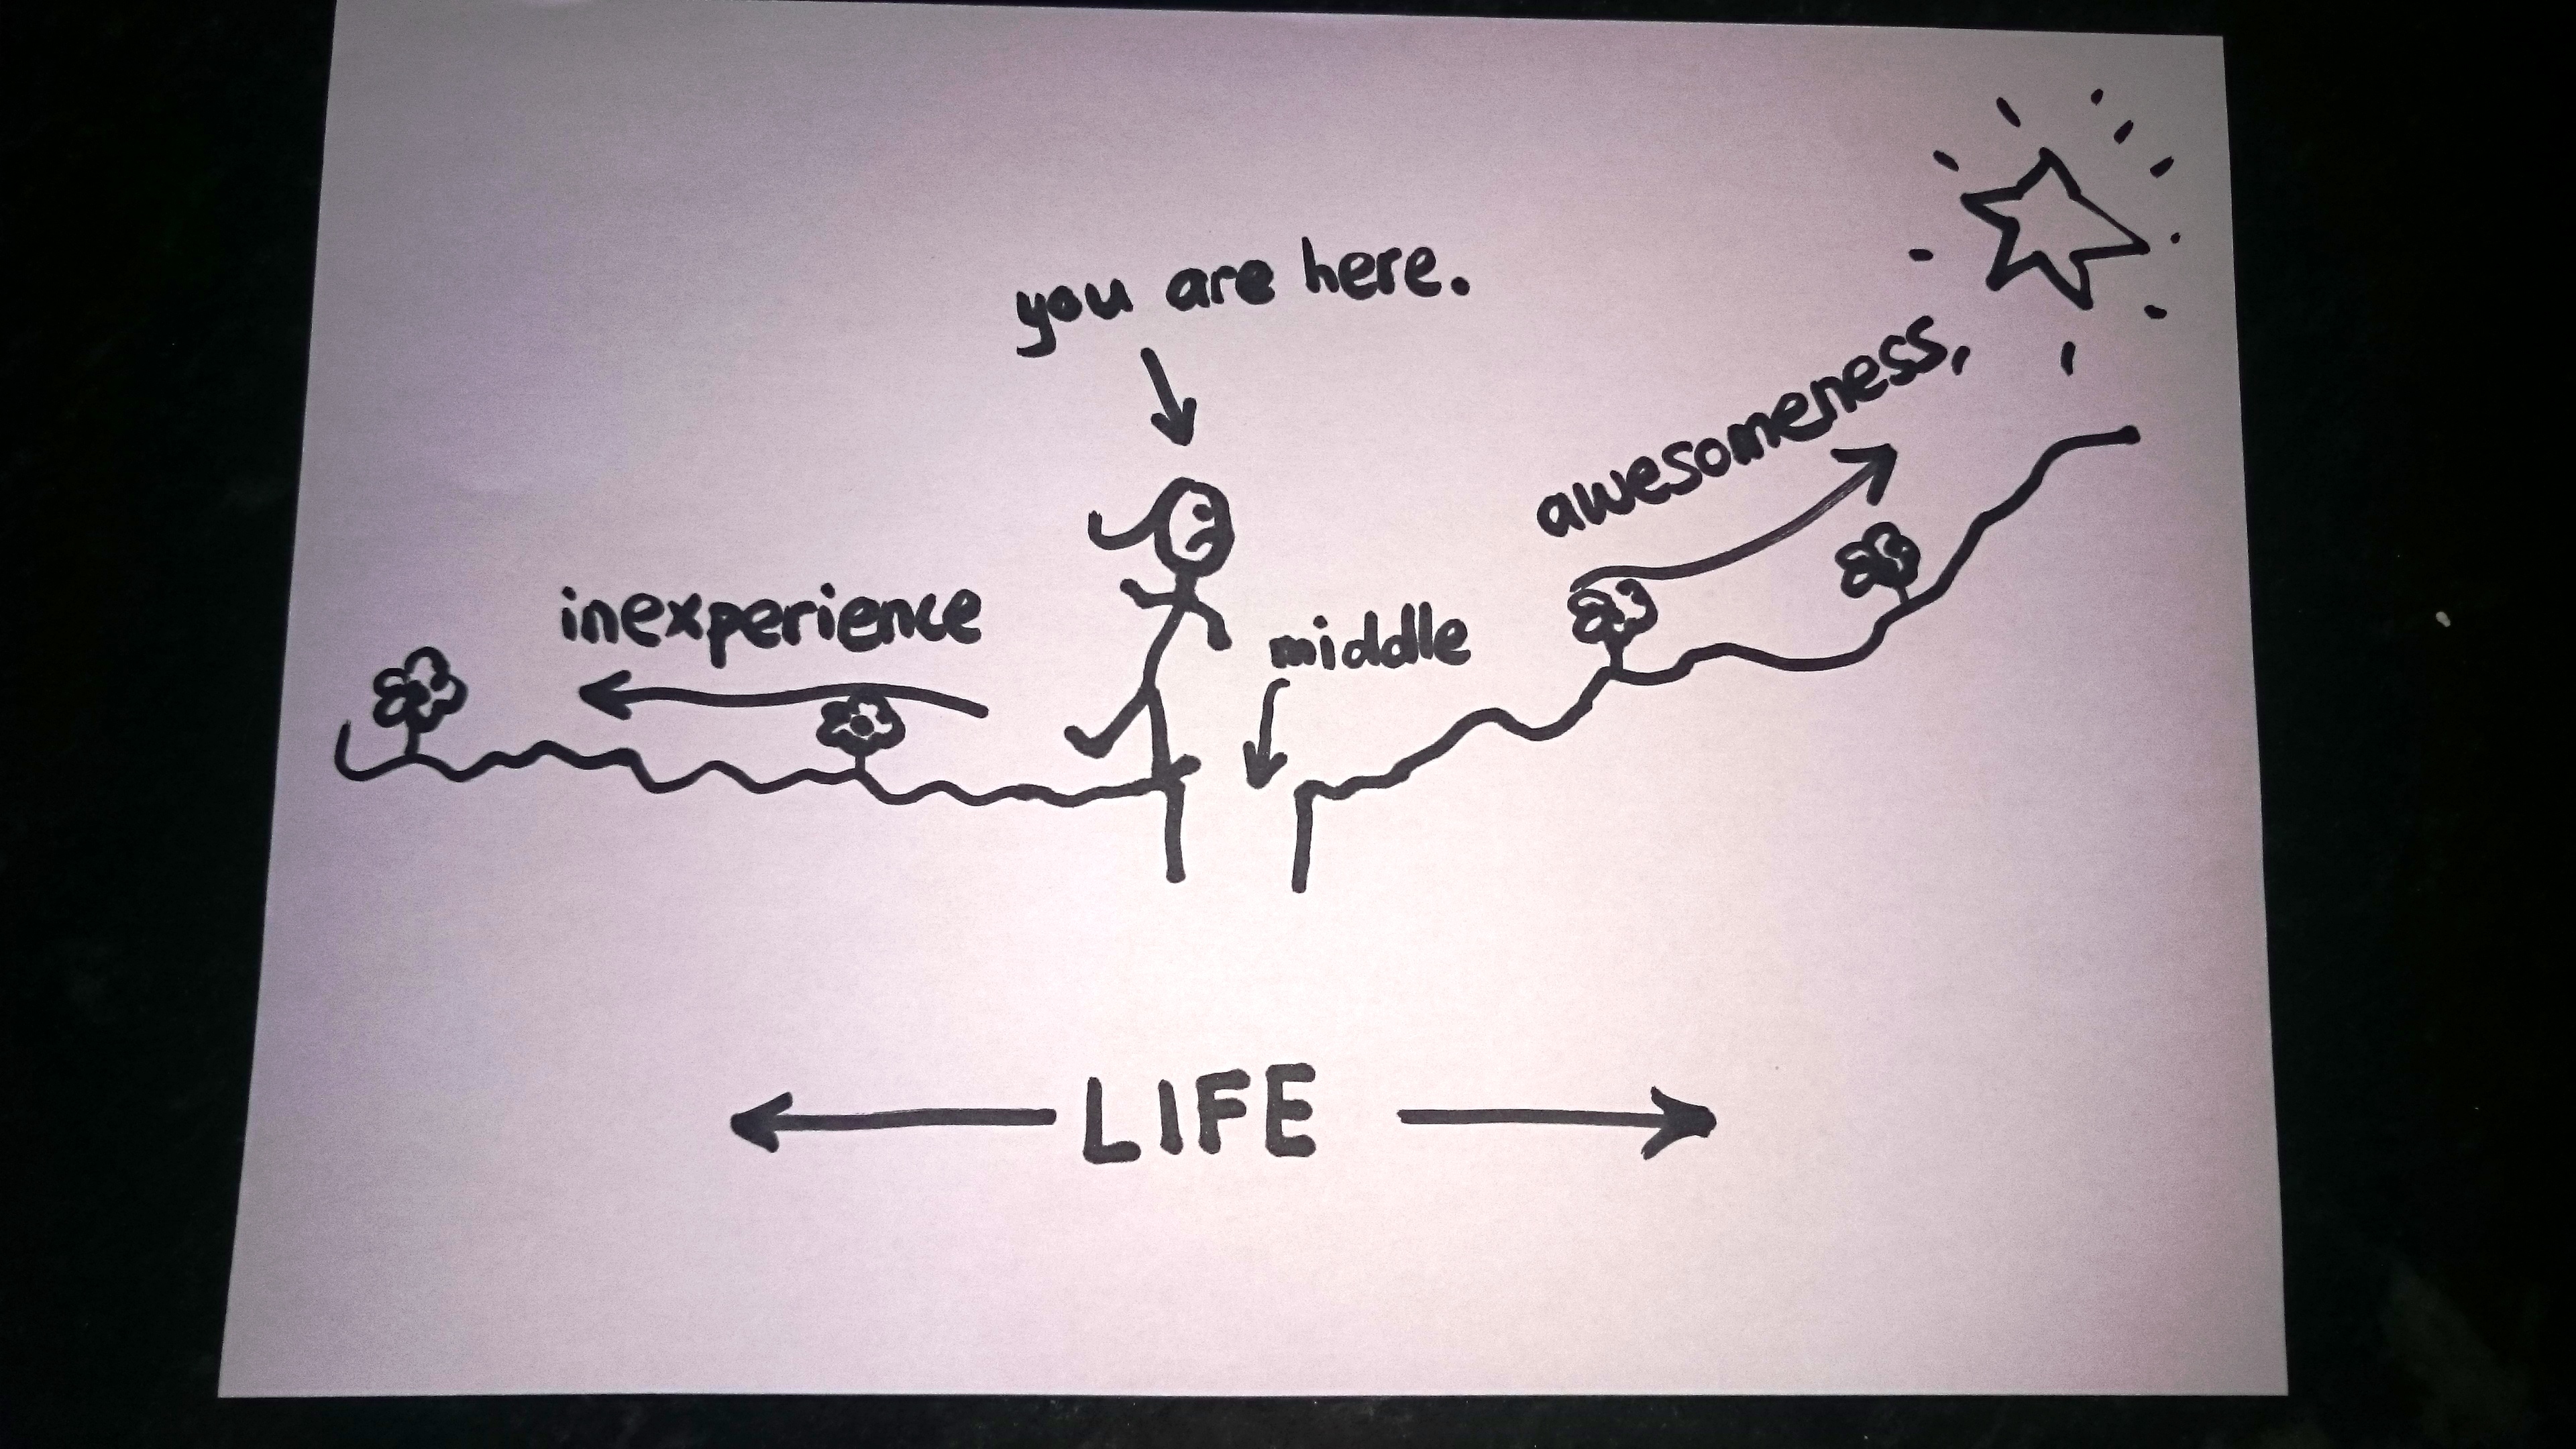 you are here.
awesomeness,
inexperience
middle
LIFE